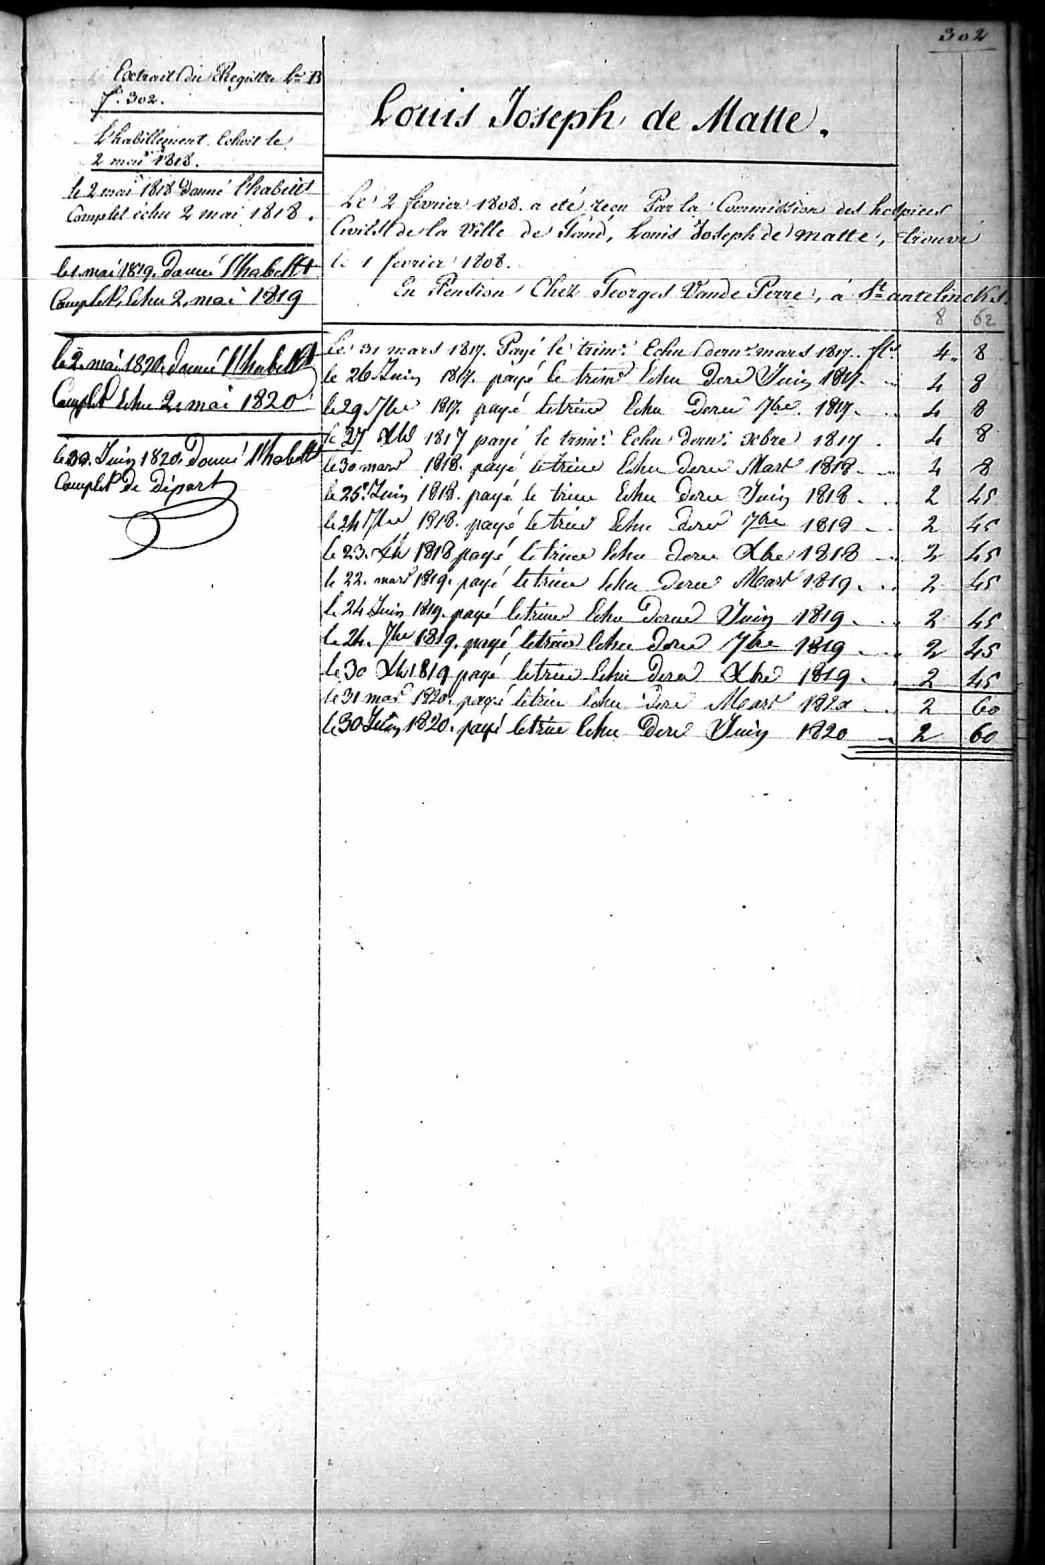 302
Extrait du Registre Lre B
f° 302.
L'habillement Echoit le
2 mai 1818.
le 2 mai 1818 Donné l'habillt
Complet échu 2 mai 1818.
le 1 mai 1819. Donné l'habillt
Complet. Echu 2 mai 1819
le 2 mai 1820. donné l'habillt
Complet Echu 2 mai 1820
Juin 1820. Donné l'habillt
Complet de Départ
Louis Joseph de Matte.
Le 2 février 1808. a été recu Par la Commission des hospices
Civils de la Ville de Gand, Louis Joseph de matte, trouvé
le 1 fevrier 1808.
En Pension Chez Georges Vande Perre, à St antelincks.
8 62
Le 31 mars 1817. Payé le trimr Echu dernr mars 1817. fls 4. 8
le 26 Juin 1817. payé le trimr Echu Derer Juin 1817. 4 8
le 29 7bre 1817. payé le trime Echu Derer 7bre 1817. 4 8
le 27 Xbre 1817 payé le trimr Echu dernr xbre 1817. 4 8
le 30 mars 1818. payé le trime Echu derer Mars 1818. 4 8
le 25 Juin 1818. payé le trime Echu derer Juin 1818. 2 45
le 24 7bre 1818. payé le trime Echu derer 7bre 1818. 2 45
le 23. Xbr 1818 payé le trime Echu derer Xbre 1818 2 45
le 22. mars 1819. payé le trime Echu derer Mars 1819. 2 45
le 24 Juin 1819. payé le trime Echu Derer Juin 1819. 2 45
le 24. 7bre 1819. payé le trime Echu derer 7bre 1819 2 45
le 30 Xbr 1819 payé le trime Echu Derer Xbre 1819. 2 45
le 31 mars 1820. payé le trime Echu Derer Mars 1820. 2 60
le 30 Juin 1820. payé le trime Echu Derer Juin 1820 2 60